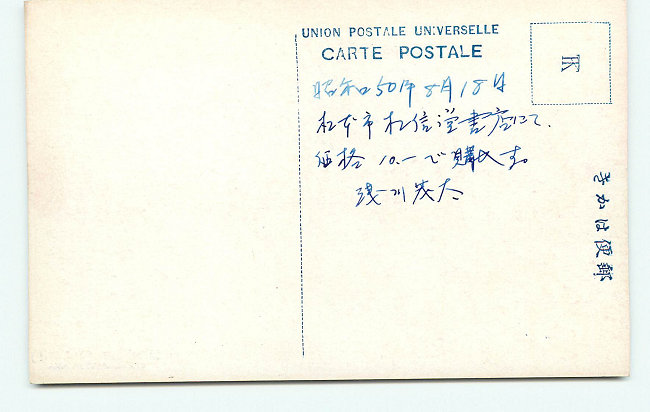 UNION POSTALE UNIVERSELLE
CARTE POSTALE
昭和50年8月18日
松本市松信堂書店にて、
価格 10.-で購入す。
浅川茂太
きかは便郵